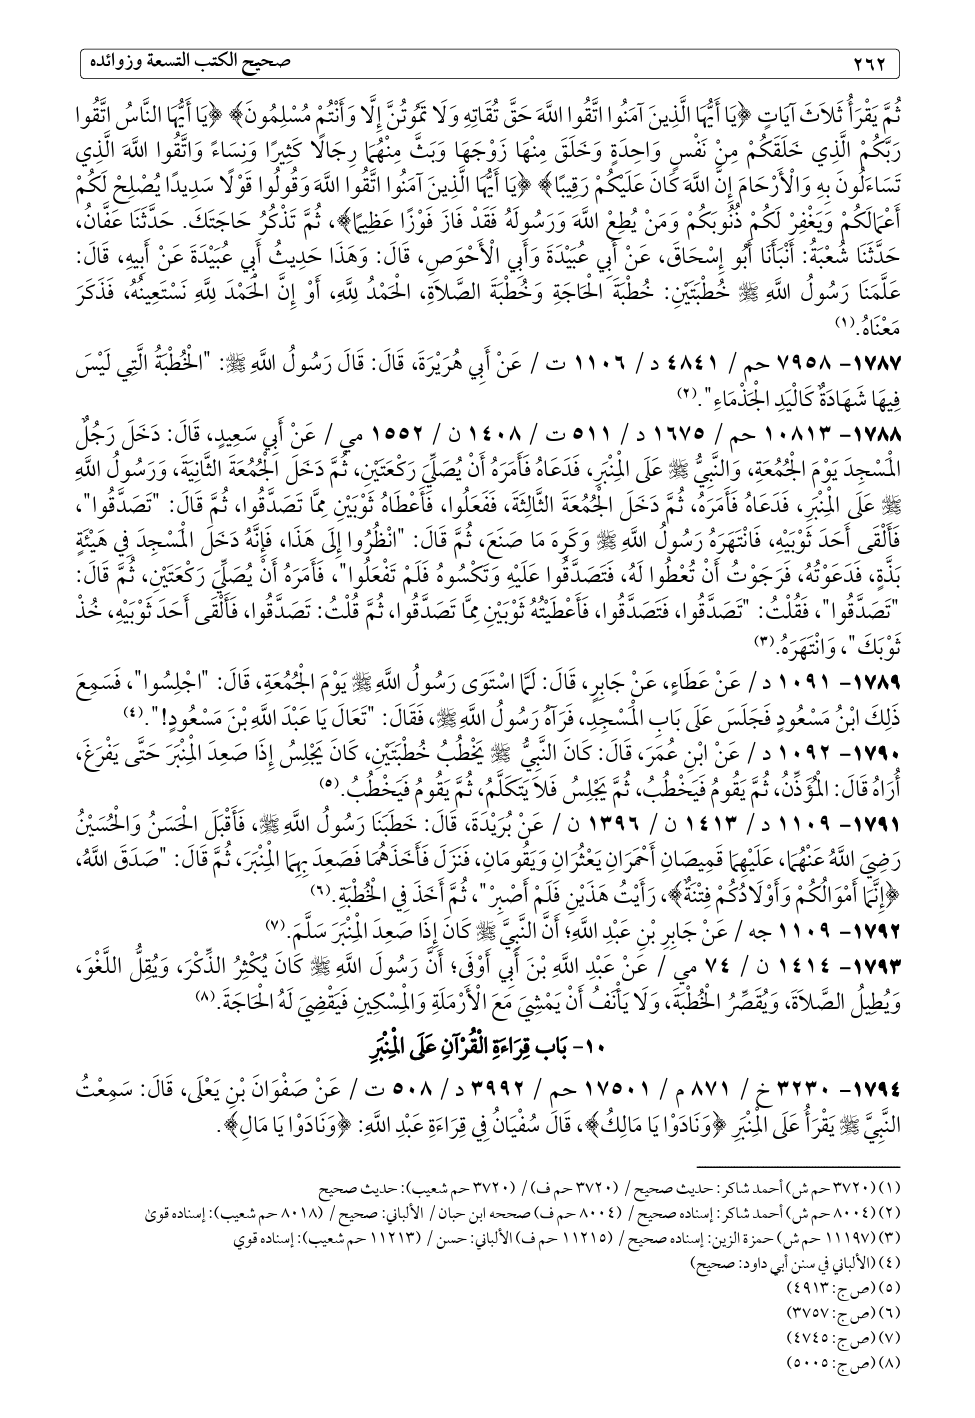 ٢٦٢ صحيح الكتب التسعة وزوائده
ثُمَّ يَقْرَأُ ثَلَاثَ آيَاتٍ ﴿يَا أَيُّهَا الَّذِينَ آمَنُوا اتَّقُوا اللَّهَ حَقَّ تُقَاتِهِ وَلَا تَمُوتُنَّ إِلَّا وَأَنْتُمْ مُسْلِمُونَ﴾ ﴿يَا أَيُّهَا النَّاسُ اتَّقُوا
رَبَّكُمُ الَّذِي خَلَقَكُمْ مِنْ نَفْسٍ وَاحِدَةٍ وَخَلَقَ مِنْهَا زَوْجَهَا وَبَثَّ مِنْهُمَا رِجَالًا كَثِيرًا وَنِسَاءً وَاتَّقُوا اللَّهَ الَّذِي
تَسَاءَلُونَ بِهِ وَالْأَرْحَامَ إِنَّ اللَّهَ كَانَ عَلَيْكُمْ رَقِيبًا﴾ ﴿يَا أَيُّهَا الَّذِينَ آمَنُوا اتَّقُوا اللَّهَ وَقُولُوا قَوْلًا سَدِيدًا يُصْلِحْ لَكُمْ
أَعْمَالَكُمْ وَيَغْفِرْ لَكُمْ ذُنُوبَكُمْ وَمَنْ يُطِعِ اللَّهَ وَرَسُولَهُ فَقَدْ فَازَ فَوْزًا عَظِيمًا﴾، ثُمَّ تَذْكُرُ حَاجَتَكَ. حَدَّثَنَا عَفَّانُ،
حَدَّثَنَا شُعْبَةُ: أَنْبَأَنَا أَبُو إِسْحَاقَ، عَنْ أَبِي عُبَيْدَةَ وَأَبِي الْأَحْوَصِ، قَالَ: وَهَذَا حَدِيثُ أَبِي عُبَيْدَةَ عَنْ أَبِيهِ، قَالَ:
عَلَّمَنَا رَسُولُ اللَّهِ ﷺ خُطْبَتَيْنِ: خُطْبَةَ الْحَاجَةِ وَخُطْبَةَ الصَّلاَةِ، الْحَمْدُ لِلَّهِ، أَوْ إِنَّ الْحَمْدَ لِلَّهِ نَسْتَعِينُهُ، فَذَكَرَ
مَعْنَاهُ.(١)
١٧٨٧- ٧٩٥٨ حم / ٤٨٤١ د / ١١٠٦ ت / عَنْ أَبِي هُرَيْرَةَ، قَالَ: قَالَ رَسُولُ اللَّهِ ﷺ: "الْخُطْبَةُ الَّتِي لَيْسَ
فِيهَا شَهَادَةٌ كَالْيَدِ الْجَذْمَاءِ".(٢)
١٧٨٨- ١٠٨١٣ حم / ١٦٧٥ د / ٥١١ ت / ١٤٠٨ ن / ١٥٥٢ مي / عَنْ أَبِي سَعِيدٍ، قَالَ: دَخَلَ رَجُلٌ
الْمَسْجِدَ يَوْمَ الْجُمُعَةِ، وَالنَّبِيُّ ﷺ عَلَى الْمِنْبَرِ، فَدَعَاهُ فَأَمَرَهُ أَنْ يُصَلِّيَ رَكْعَتَيْنِ، ثُمَّ دَخَلَ الْجُمُعَةَ الثَّانِيَةَ، وَرَسُولُ اللَّهِ
ﷺ عَلَى الْمِنْبَرِ، فَدَعَاهُ فَأَمَرَهُ، ثُمَّ دَخَلَ الْجُمُعَةَ الثَّالِثَةَ، فَفَعَلُوا، فَأَعْطَاهُ ثَوْبَيْنِ مِمَّا تَصَدَّقُوا، ثُمَّ قَالَ: "تَصَدَّقُوا"،
فَأَلْقَى أَحَدَ ثَوْبَيْهِ، فَانْتَهَرَهُ رَسُولُ اللَّهِ ﷺ وَكَرِهَ مَا صَنَعَ، ثُمَّ قَالَ: "انْظُرُوا إِلَى هَذَا، فَإِنَّهُ دَخَلَ الْمَسْجِدَ فِي هَيْئَةٍ
بَذَّةٍ، فَدَعَوْتُهُ، فَرَجَوْتُ أَنْ تُعْطُوا لَهُ، فَتَصَدَّقُوا عَلَيْهِ وَتَكْسُوهُ فَلَمْ تَفْعَلُوا"، فَأَمَرَهُ أَنْ يُصَلِّيَ رَكْعَتَيْنِ، ثُمَّ قَالَ:
"تَصَدَّقُوا"، فَقُلْتُ: "تَصَدَّقُوا، فَتَصَدَّقُوا، فَأَعْطَيْتُهُ ثَوْبَيْنِ مِمَّا تَصَدَّقُوا، ثُمَّ قُلْتُ: تَصَدَّقُوا، فَأَلْقَى أَحَدَ ثَوْبَيْهِ، خُذْ
ثَوْبَكَ"، وَانْتَهَرَهُ.(٣)
١٧٨٩- ١٠٩١ د / عَنْ عَطَاءٍ، عَنْ جَابِرٍ، قَالَ: لَمَّا اسْتَوَى رَسُولُ اللَّهِ ﷺ يَوْمَ الْجُمُعَةِ، قَالَ: "اجْلِسُوا"، فَسَمِعَ
ذَلِكَ ابْنُ مَسْعُودٍ فَجَلَسَ عَلَى بَابِ الْمَسْجِدِ، فَرَآهُ رَسُولُ اللَّهِ ﷺ، فَقَالَ: "تَعَالَ يَا عَبْدَ اللَّهِ بْنَ مَسْعُودٍ!".(٤)
١٧٩٠- ١٠٩٢ د / عَنْ ابْنِ عُمَرَ، قَالَ: كَانَ النَّبِيُّ ﷺ يَخْطُبُ خُطْبَتَيْنِ، كَانَ يَجْلِسُ إِذَا صَعِدَ الْمِنْبَرَ حَتَّى يَفْرَغَ،
أُرَاهُ قَالَ: الْمُؤَذِّنُ، ثُمَّ يَقُومُ فَيَخْطُبُ، ثُمَّ يَجْلِسُ فَلاَ يَتَكَلَّمُ، ثُمَّ يَقُومُ فَيَخْطُبُ.(٥)
١٧٩١- ١١٠٩ د / ١٤١٣ ن / ١٣٩٦ ن / عَنْ بُرَيْدَةَ، قَالَ: خَطَبَنَا رَسُولُ اللَّهِ ﷺ، فَأَقْبَلَ الْحَسَنُ وَالْحُسَيْنُ
رَضِيَ اللَّهُ عَنْهُمَا، عَلَيْهِمَا قَمِيصَانِ أَحْمَرَانِ يَعْثُرَانِ وَيَقُومَانِ، فَنَزَلَ فَأَخَذَهُمَا فَصَعِدَ بِهِمَا الْمِنْبَرَ، ثُمَّ قَالَ: "صَدَقَ اللَّهُ،
﴿إِنَّمَا أَمْوَالُكُمْ وَأَوْلَادُكُمْ فِتْنَةٌ﴾، رَأَيْتُ هَذَيْنِ فَلَمْ أَصْبِرْ"، ثُمَّ أَخَذَ فِي الْخُطْبَةِ.(٦)
١٧٩٢- ١١٠٩ جه / عَنْ جَابِرِ بْنِ عَبْدِ اللَّهِ؛ أَنَّ النَّبِيَّ ﷺ كَانَ إِذَا صَعِدَ الْمِنْبَرَ سَلَّمَ.(٧)
١٧٩٣- ١٤١٤ ن / ٧٤ مي / عَنْ عَبْدِ اللَّهِ بْنَ أَبِي أَوْفَى؛ أَنَّ رَسُولَ اللَّهِ ﷺ كَانَ يُكْثِرُ الذِّكْرَ، وَيُقِلُّ اللَّغْوَ،
وَيُطِيلُ الصَّلَاةَ، وَيُقَصِّرُ الْخُطْبَةَ، وَلَا يَأْنَفُ أَنْ يَمْشِيَ مَعَ الْأَرْمَلَةِ وَالْمِسْكِينِ فَيَقْضِيَ لَهُ الْحَاجَةَ.(٨)
١٠- بَاب قِرَاءَةِ الْقُرْآنِ عَلَى الْمِنْبَرِ
١٧٩٤- ٣٢٣٠ خ / ٨٧١ م / ١٧٥٠١ حم / ٣٩٩٢ د / ٥٠٨ ت / عَنْ صَفْوَانَ بْنِ يَعْلَى، قَالَ: سَمِعْتُ
النَّبِيَّ ﷺ يَقْرَأُ عَلَى الْمِنْبَرِ ﴿وَنَادَوْا يَا مَالِكُ﴾، قَالَ سُفْيَانُ فِي قِرَاءَةِ عَبْدِ اللَّهِ: ﴿وَنَادَوْا يَا مَالِ﴾.
(١) (٣٧٢٠ حم ش) أحمد شاكر: حديث صحيح / (٣٧٢٠ حم ف) / (٣٧٢٠ حم شعيب): حديث صحيح
(٢) (٨٠٠٤ حم ش) أحمد شاكر: إسناده صحيح / (٨٠٠٤ حم ف) صححه ابن حبان / الألباني: صحيح / (٨٠١٨ حم شعيب): إسناده قوى
(٣) (١١١٩٧ حم ش) حمزة الزين: إسناده صحيح / (١١٢١٥ حم ف) الألباني: حسن / (١١٢١٣ حم شعيب): إسناده قوي
(٤) (الألباني في سنن أبي داود: صحيح)
(٥) (ص ج: ٤٩١٣)
(٦) (ص ج: ٣٧٥٧)
(٧) (ص ج: ٤٧٤٥)
(٨) (ص ج: ٥٠٠٥)